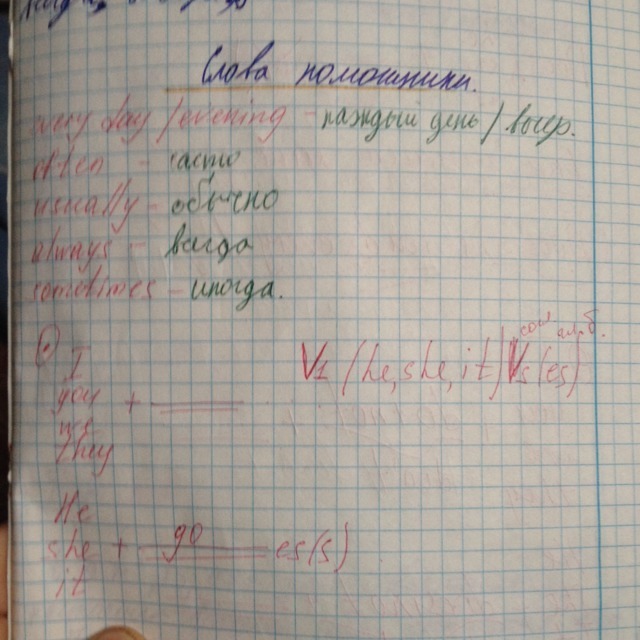 Слова помошники.
every day / evening - каждый день / вечер.
often - часто
usually - обычно
always - всегда
sometimes - иногда.
I V1 (he, she, it) Vs (es)
you + ____
we
they
He
she + __go__ es(s)
it